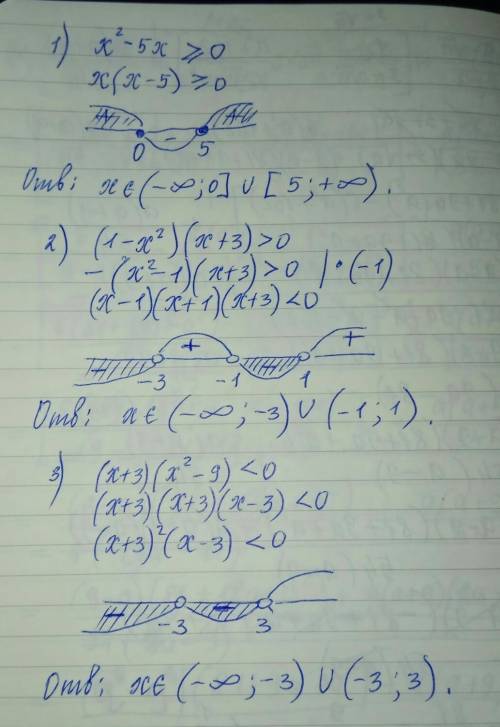 1) x² - 5x ⩾ 0
x(x-5) ≥ 0
+ - +
0 5
Отв: x ∈ (-∞; 0] ∪ [5; +∞).
2) (1-x²)(x+3) > 0
-(x²-1)(x+3) > 0 | · (-1)
(x-1)(x+1)(x+3) < 0
- + - +
-3 -1 1
Отв: x ∈ (-∞; -3) ∪ (-1; 1).
3) (x+3)(x²-9) < 0
(x+3)(x+3)(x-3) < 0
(x+3)²(x-3) < 0
- -
-3 3
Отв: x ∈ (-∞; -3) ∪ (-3; 3).